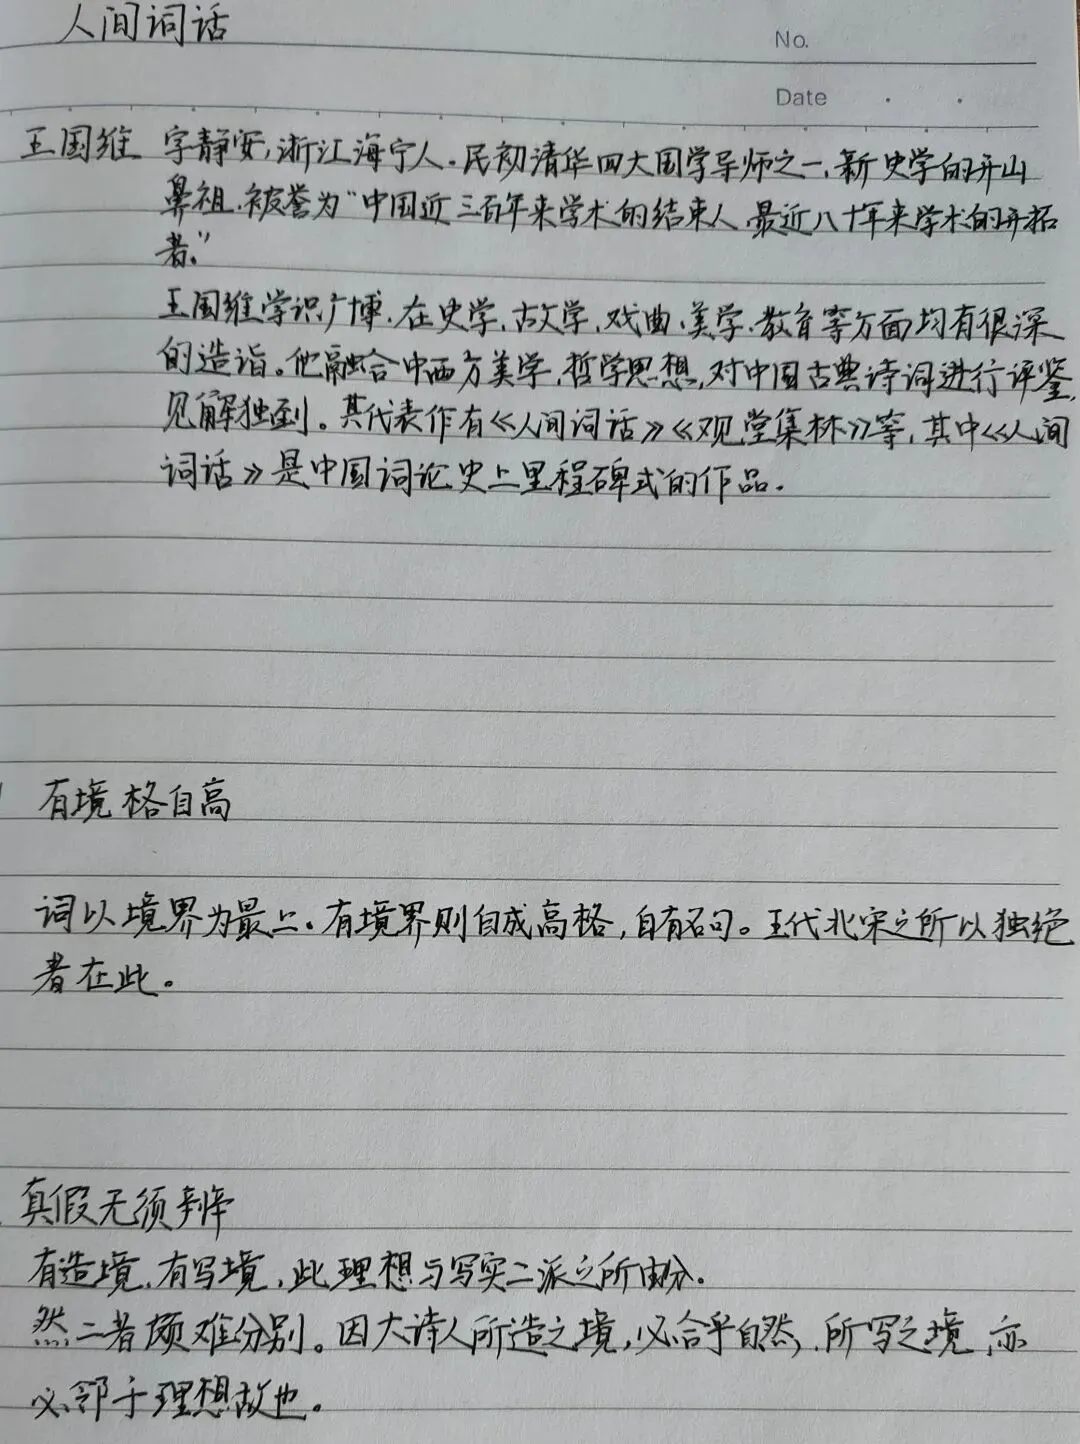 人间词话
No.
Date
王国维 字静安,浙江海宁人.民初清华四大国学导师之一,新史学的开山
鼻祖.被誉为“中国近三百年来学术的结束人,最近八十年来学术的开拓
者.”
王国维学识广博.在史学,古文学,戏曲,美学,教育等方面均有很深
的造诣。他融合中西方美学,哲学思想,对中国古典诗词进行评鉴,
见解独到。其代表作有《人间词话》《观堂集林》等,其中《人间
词话》是中国词论史上里程碑式的作品.
有境格自高
词以境界为最上.有境界则自成高格,自有名句。五代北宋之所以独绝
者在此。
真假无须辨
有造境,有写境,此理想与写实二派之所由分.
然二者颇难分别。因大诗人所造之境,必合乎自然,所写之境,亦
必邻于理想故也。